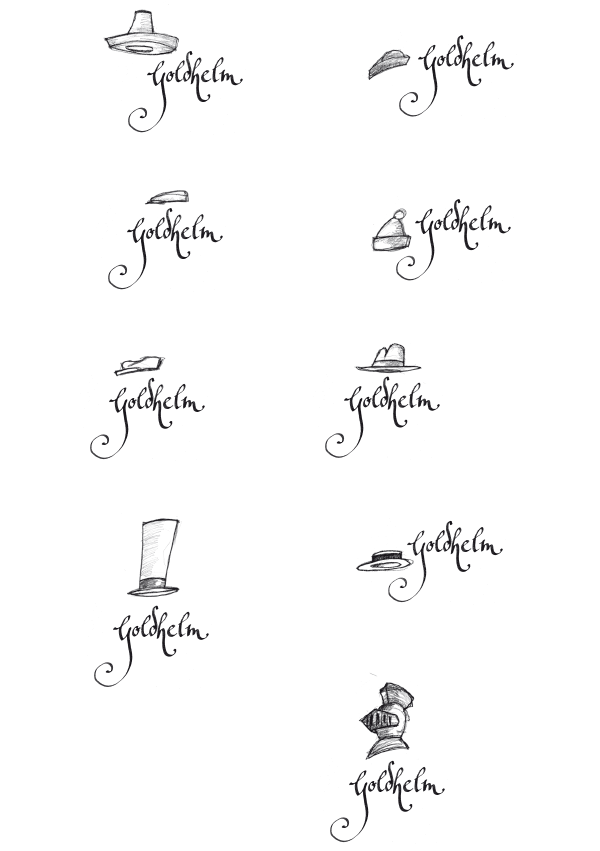 Goldhelm
Goldhelm
Goldhelm
Goldhelm
Goldhelm
Goldhelm
Goldhelm
Goldhelm
Goldhelm